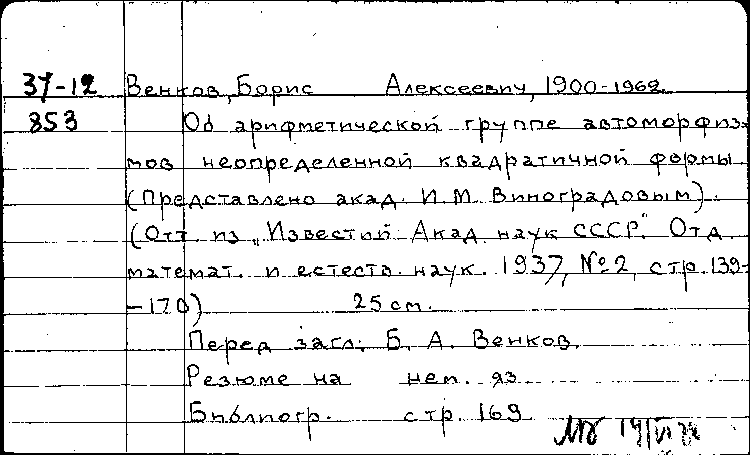 37-12 Венков, Борис Алексеевич, 1900-1962
853 Об арифметической группе автоморфиз-
мов неопределенной квадратичной формы
(Представлено акад. И. М. Виноградовым).
(Отт. из „Известий Акад. наук СССР." Отд.
математ. и естеств. наук. 1937, №2, стр. 139-
-170) 25 см.
Перед загл.: Б. А. Венков.
Резюме на нем. яз.
Библиогр. стр. 169